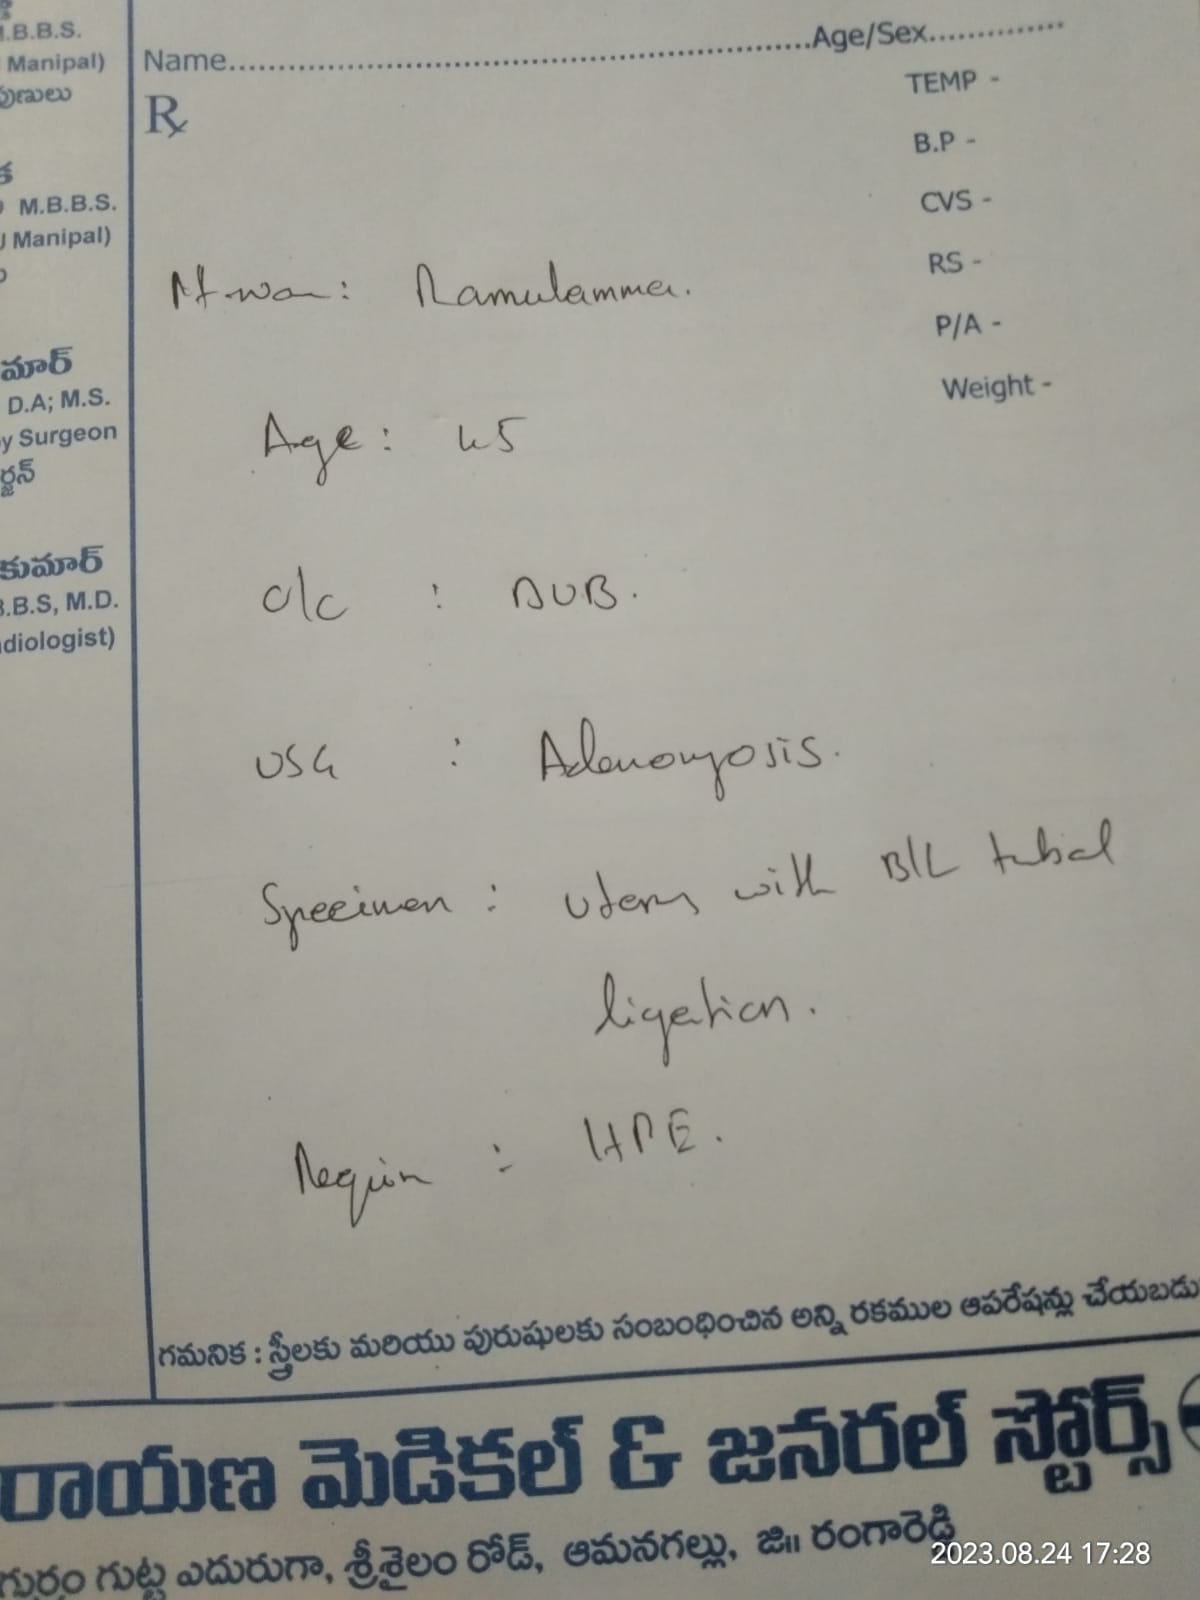 .B.B.S.
Manipal)
పుణులు
క
M.B.B.S.
Manipal)
మార్
D.A; M.S.
y Surgeon
ర్జన్
కుమార్
B.B.S, M.D.
diologist)
Name..........................................................Age/Sex.............
Rx
TEMP -
B.P -
CVS -
RS -
P/A -
Weight -
Ramulamma.
Age : 45
c/c : AUB.
USG : Adenomyosis.
Specimen : Uterus with B/L tubal
ligation.
HPE.
గమనిక : స్త్రీలకు మరియు పురుషులకు సంబంధించిన అన్ని రకముల ఆపరేషన్లు చేయబడు
రాయణ మెడికల్ & జనరల్ స్టోర్స్
గుర్రం గుట్ట ఎదురుగా, శ్రీశైలం రోడ్, ఆమనగల్లు, జి॥ రంగారెడ్డి
2023.08.24 17:28